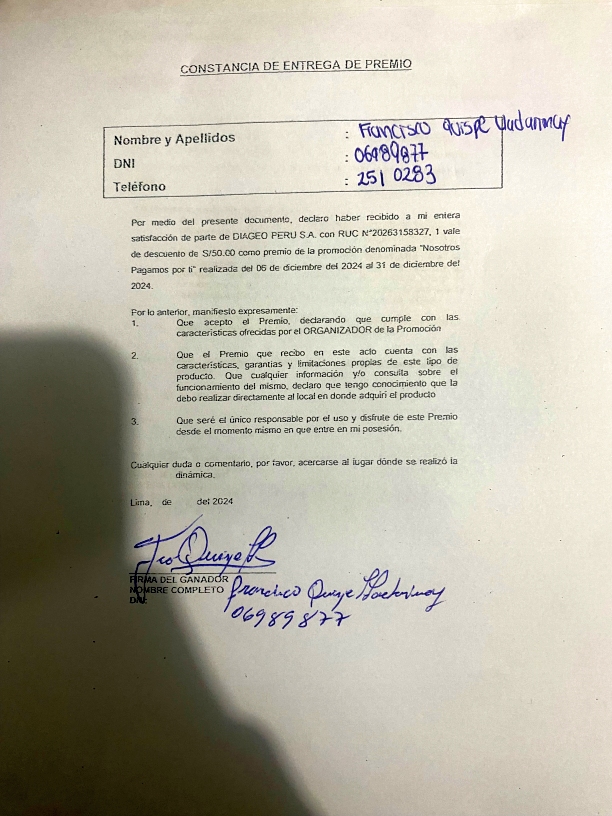 CONSTANCIA DE ENTREGA DE PREMIO
Nombre y Apellidos : Francisco Quispe
DNI : 06989877
Teléfono : 251 0283
Por medio del presente documento, declaro haber recibido a mi entera
satisfacción de parte de DIAGEO PERU S.A. con RUC N°20263158327, 1 vale
de descuento de S/50.00 como premio de la promoción denominada "Nosotros
Pagamos por ti" realizada del 06 de diciembre del 2024 al 31 de diciembre del
2024.
Por lo anterior, manifiesto expresamente:
1. Que acepto el Premio, declarando que cumple con las
características ofrecidas por el ORGANIZADOR de la Promoción
2. Que el Premio que recibo en este acto cuenta con las
características, garantías y limitaciones propias de este tipo de
producto. Que cualquier información y/o consulta sobre el
funcionamiento del mismo, declaro que tengo conocimiento que la
debo realizar directamente al local en donde adquirí el producto
3. Que seré el único responsable por el uso y disfrute de este Premio
desde el momento mismo en que entre en mi posesión.
Cualquier duda o comentario, por favor, acercarse al lugar dónde se realizó la
dinámica.
Lima, de del 2024
FIRMA DEL GANADOR
NOMBRE COMPLETO Francisco Quispe
DNI:
06989877